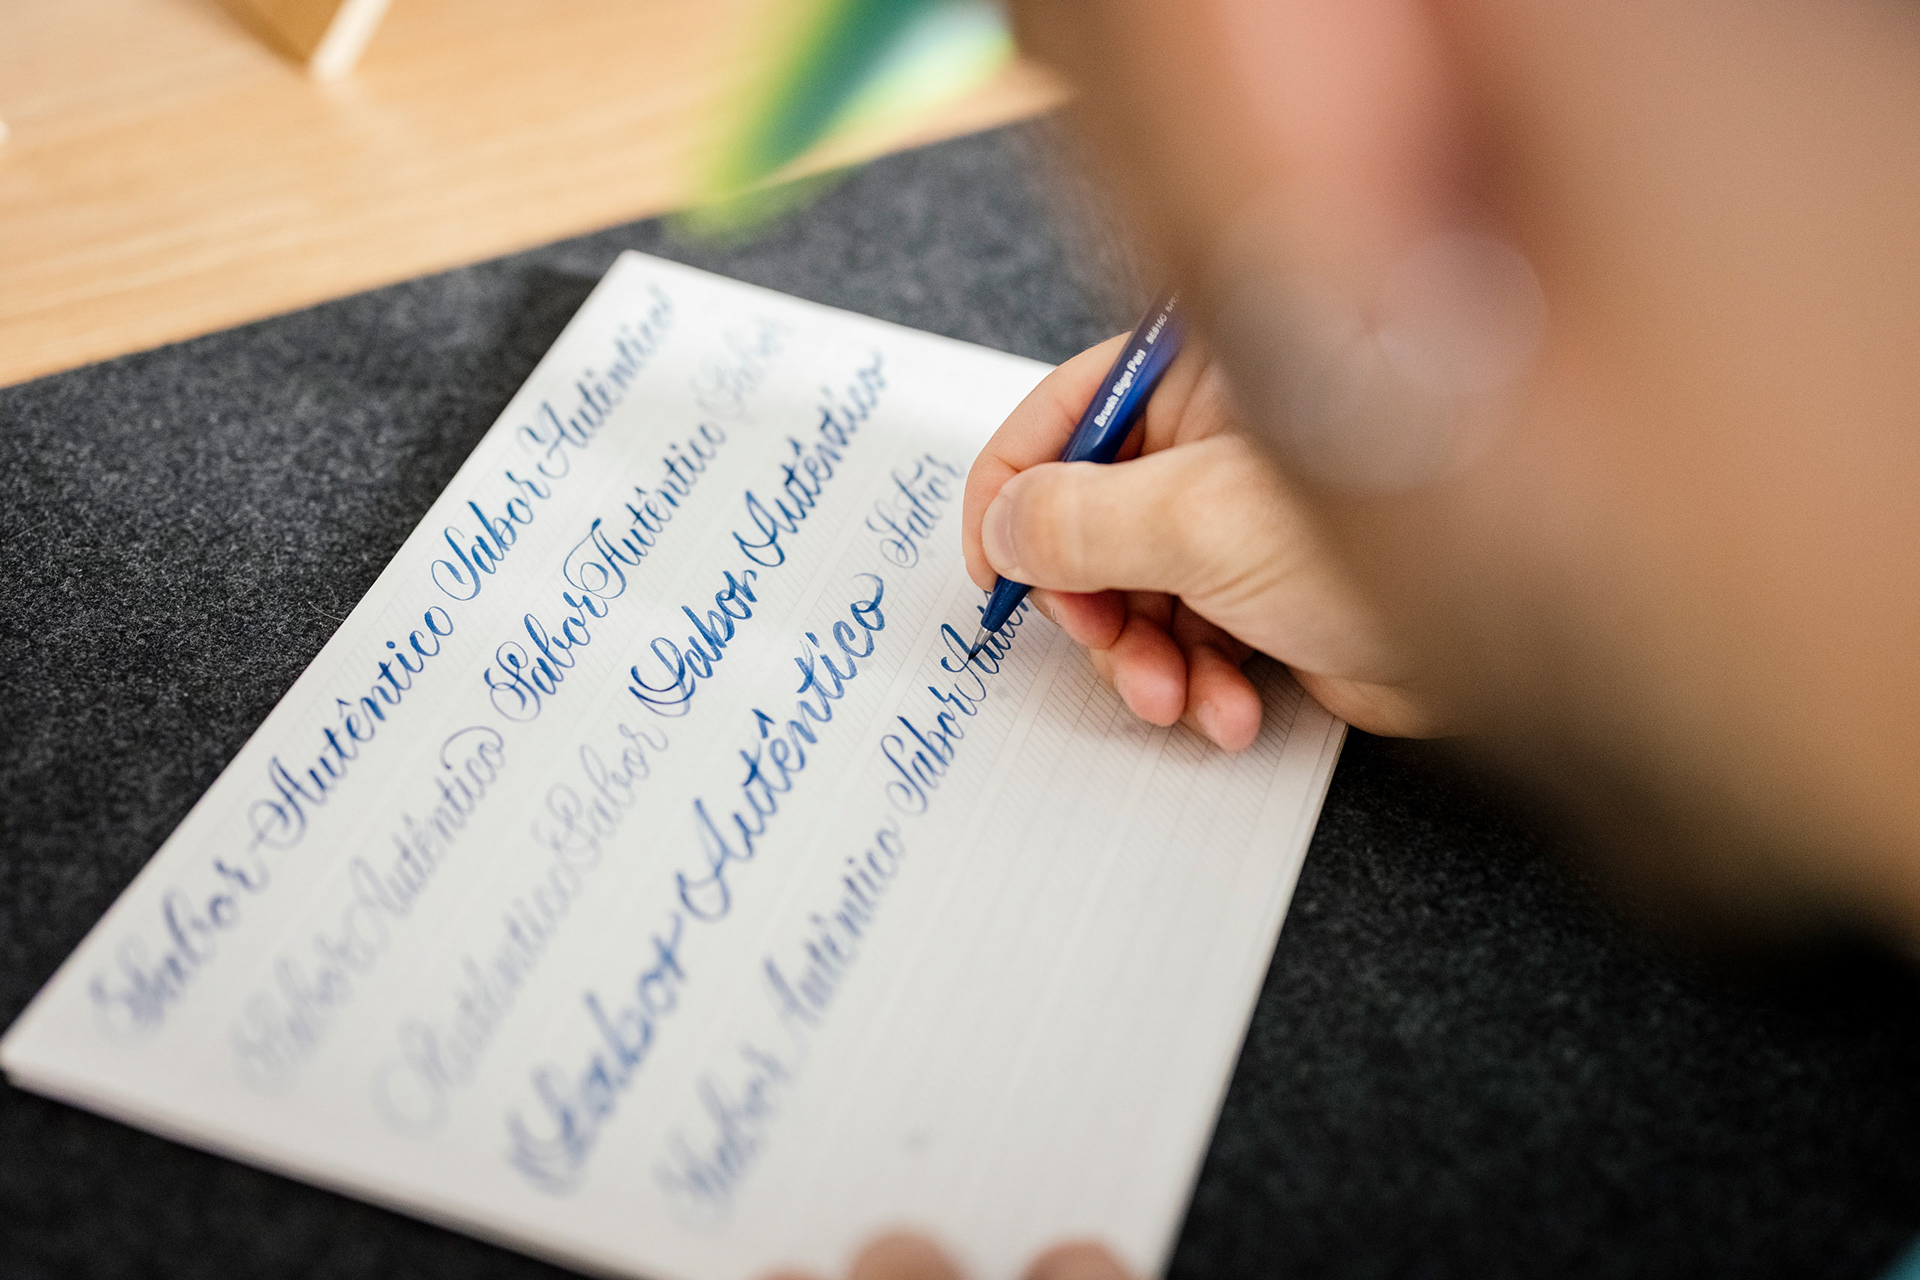 Sabor Autêntico Sabor Autêntico
Sabor Autêntico Sabor Autêntico Sabor
Autêntico Sabor Sabor Autêntico
Sabor Autêntico Sabor
Sabor Autêntico Sabor
Brush Sign Pen